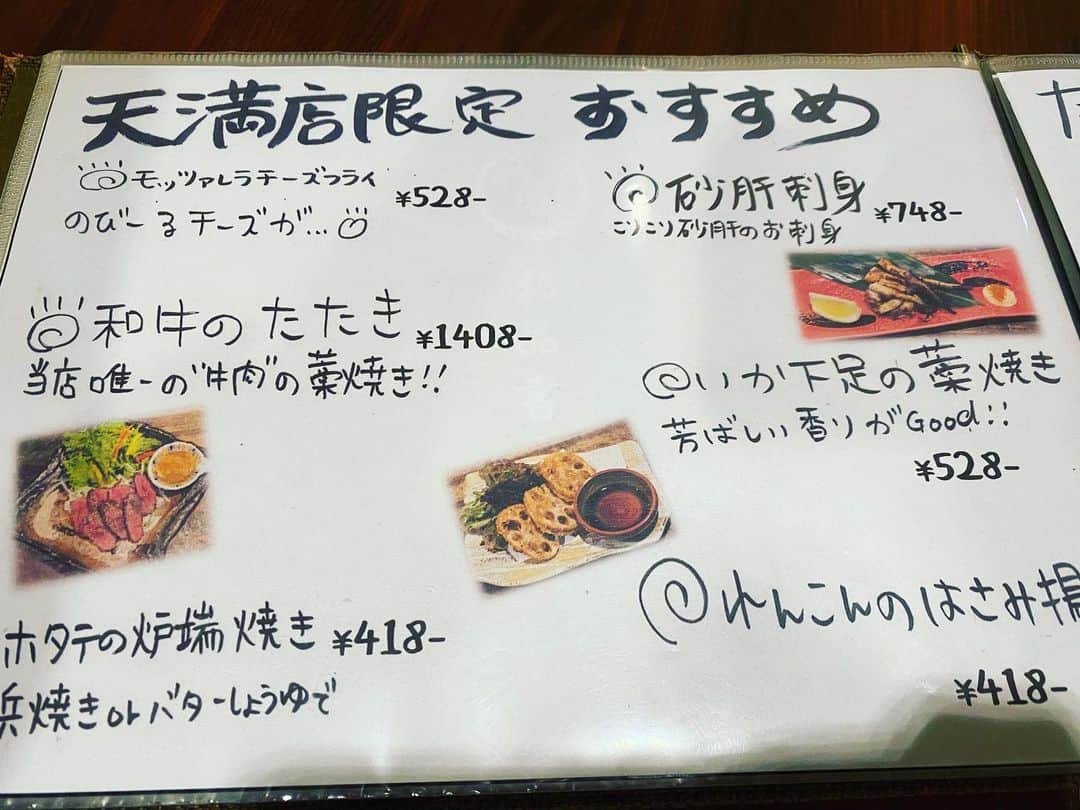 天満店限定 おすすめ
モッツァレラチーズフライ ¥528-
のびーるチーズが…
和牛のたたき ¥1408-
当店唯一の"牛肉"の藁焼き!!
ホタテの炉端焼き ¥418-
浜焼きorバターしょうゆで
砂肝刺身 ¥748-
こりこり砂肝のお刺身
いか下足の藁焼き
芳ばしい香りがGood!!
¥528-
れんこんのはさみ揚
¥418-